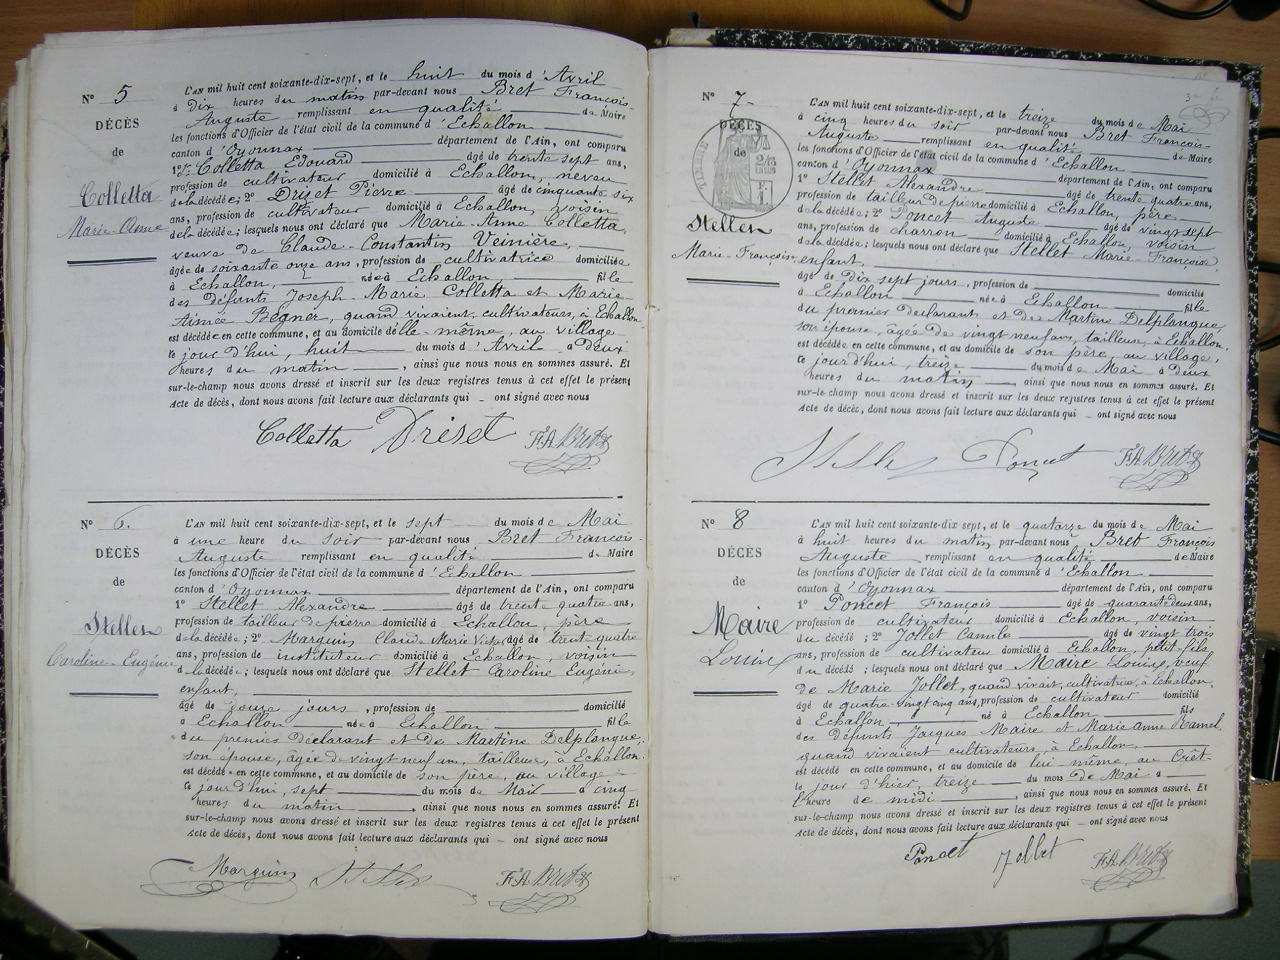 N° 5
DÉCÈS
de
Colletta
Marie-Anne
L'AN mil huit cent soixante-dix-sept, et le huit du mois d'Avril
à Dix heures du matin par-devant nous Bret François-
Auguste remplissant en qualité de Maire
les fonctions d'Officier de l'état civil de la commune d'Echallon
canton d'Oyonnax département de l'Ain, ont comparu
1° Colletta Edouard âgé de trente sept ans,
profession de cultivateur domicilié à Echallon, neveu
de la décédée; 2° Driset Pierre âgé de cinquante six
ans, profession de cultivateur domicilié à Echallon, voisin
de la décédée; lesquels nous ont déclaré que Marie-Anne Colletta
veuve de Claude-Constantin Veinière,
âgée de soixante onze ans, profession de cultivatrice domiciliée
à Echallon, née à Echallon fille
des Défunts Joseph-Marie Colletta et Marie
Aimée Begner, quand vivaient, cultivateurs, à Echallon
est décédée en cette commune, et au domicile d'elle-même, au village
le jour d'hui, huit du mois d'Avril à Deux
heures du matin, ainsi que nous nous en sommes assuré. Et
sur-le-champ nous avons dressé et inscrit sur les deux registres tenus à cet effet le présent
acte de décès, dont nous avons fait lecture aux déclarants qui - ont signé avec nous
Colletta Driset F.A. Bret
N° 6.
DÉCÈS
de
Stellet
Caroline-Eugénie
L'AN mil huit cent soixante-dix-sept, et le sept du mois de Mai
à une heure du soir par-devant nous Bret François-
Auguste remplissant en qualité de Maire
les fonctions d'Officier de l'état civil de la commune d'Echallon
canton d'Oyonnax département de l'Ain, ont comparu
1° Stellet Alexandre âgé de trente quatre ans,
profession de tailleur de pierre domicilié à Echallon, père
de la décédée; 2° Marquis Claude Marie âgé de trente quatre
ans, profession de instituteur domicilié à Echallon, voisin
de la décédée; lesquels nous ont déclaré que Stellet Caroline Eugénie
enfant,
âgé de jours, profession de domicilié
à Echallon née à Echallon fille
du premier Déclarant et de Martine Delplangue,
son épouse, âgée de vingt neuf ans, tailleurs, à Echallon.
est décédée en cette commune, et au domicile de son père, au village
le jour d'hui, sept du mois de Mai à cinq
heures du matin, ainsi que nous nous en sommes assuré. Et
sur-le-champ nous avons dressé et inscrit sur les deux registres tenus à cet effet le présent
acte de décès, dont nous avons fait lecture aux déclarants qui - ont signé avec nous
Marquis Stellet F.A. Bret
N° 7-
DÉCÈS
de
Stellet
Marie-Françoise
L'AN mil huit cent soixante-dix-sept, et le treize du mois de Mai
à cinq heures du soir par-devant nous Bret François-
Auguste remplissant en qualité de Maire
les fonctions d'Officier de l'état civil de la commune d'Echallon
canton d'Oyonnax département de l'Ain, ont comparu
1° Stellet Alexandre âgé de trente quatre ans,
profession de tailleur de pierre domicilié à Echallon, père
de la décédée; 2° Poncet Auguste âgé de vingt sept
ans, profession de charron domicilié à Echallon, voisin
de la décédée; lesquels nous ont déclaré que Stellet Marie-Françoise
enfant,
âgé de dix sept jours, profession de domicilié
à Echallon née à Echallon fille
du premier déclarant et de Martine Delplangue,
son épouse, âgée de vingt neuf ans, tailleurs, à Echallon.
est décédée en cette commune, et au domicile de son père, au village,
le jourd'hui, treize du mois de Mai à Deux
heures du matin ainsi que nous nous en sommes assuré. Et
sur-le-champ nous avons dressé et inscrit sur les deux registres tenus à cet effet le présent
acte de décès, dont nous avons fait lecture aux déclarants qui - ont signé avec nous
Stellet Poncet F.A. Bret
N° 8
DÉCÈS
de
Maire
Louis
L'AN mil huit cent soixante-dix-sept, et le quatorze du mois de Mai
à huit heures du matin par-devant nous Bret François
Auguste remplissant en qualité de Maire
les fonctions d'Officier de l'état civil de la commune d'Echallon
canton d'Oyonnax département de l'Ain, ont comparu
1° Poncet François âgé de quarante deux ans,
profession de cultivateur domicilié à Echallon, voisin
du décédé; 2° Jollet Camile âgé de vingt trois
ans, profession de cultivateur domicilié à Echallon, petit-fils
du décédé; lesquels nous ont déclaré que Maire Louis, veuf
de Marie Jollet, quand vivait, cultivatrice, à Echallon,
âgé de quatre-vingt cinq ans, profession de cultivateur domicilié
à Echallon né à Echallon fils
des Défunts Jacques Maire et Marie Anne Hamel
quand vivaient cultivateurs, à Echallon.
est décédé en cette commune, et au domicile de lui même, au Crêt-
le jour d'hier, treize du mois de Mai à
l'heure de midi, ainsi que nous nous en sommes assuré. Et
sur-le-champ nous avons dressé et inscrit sur les deux registres tenus à cet effet le présent
acte de décès, dont nous avons fait lecture aux déclarants qui - ont signé avec nous
Poncet Jollet F.A. Bret